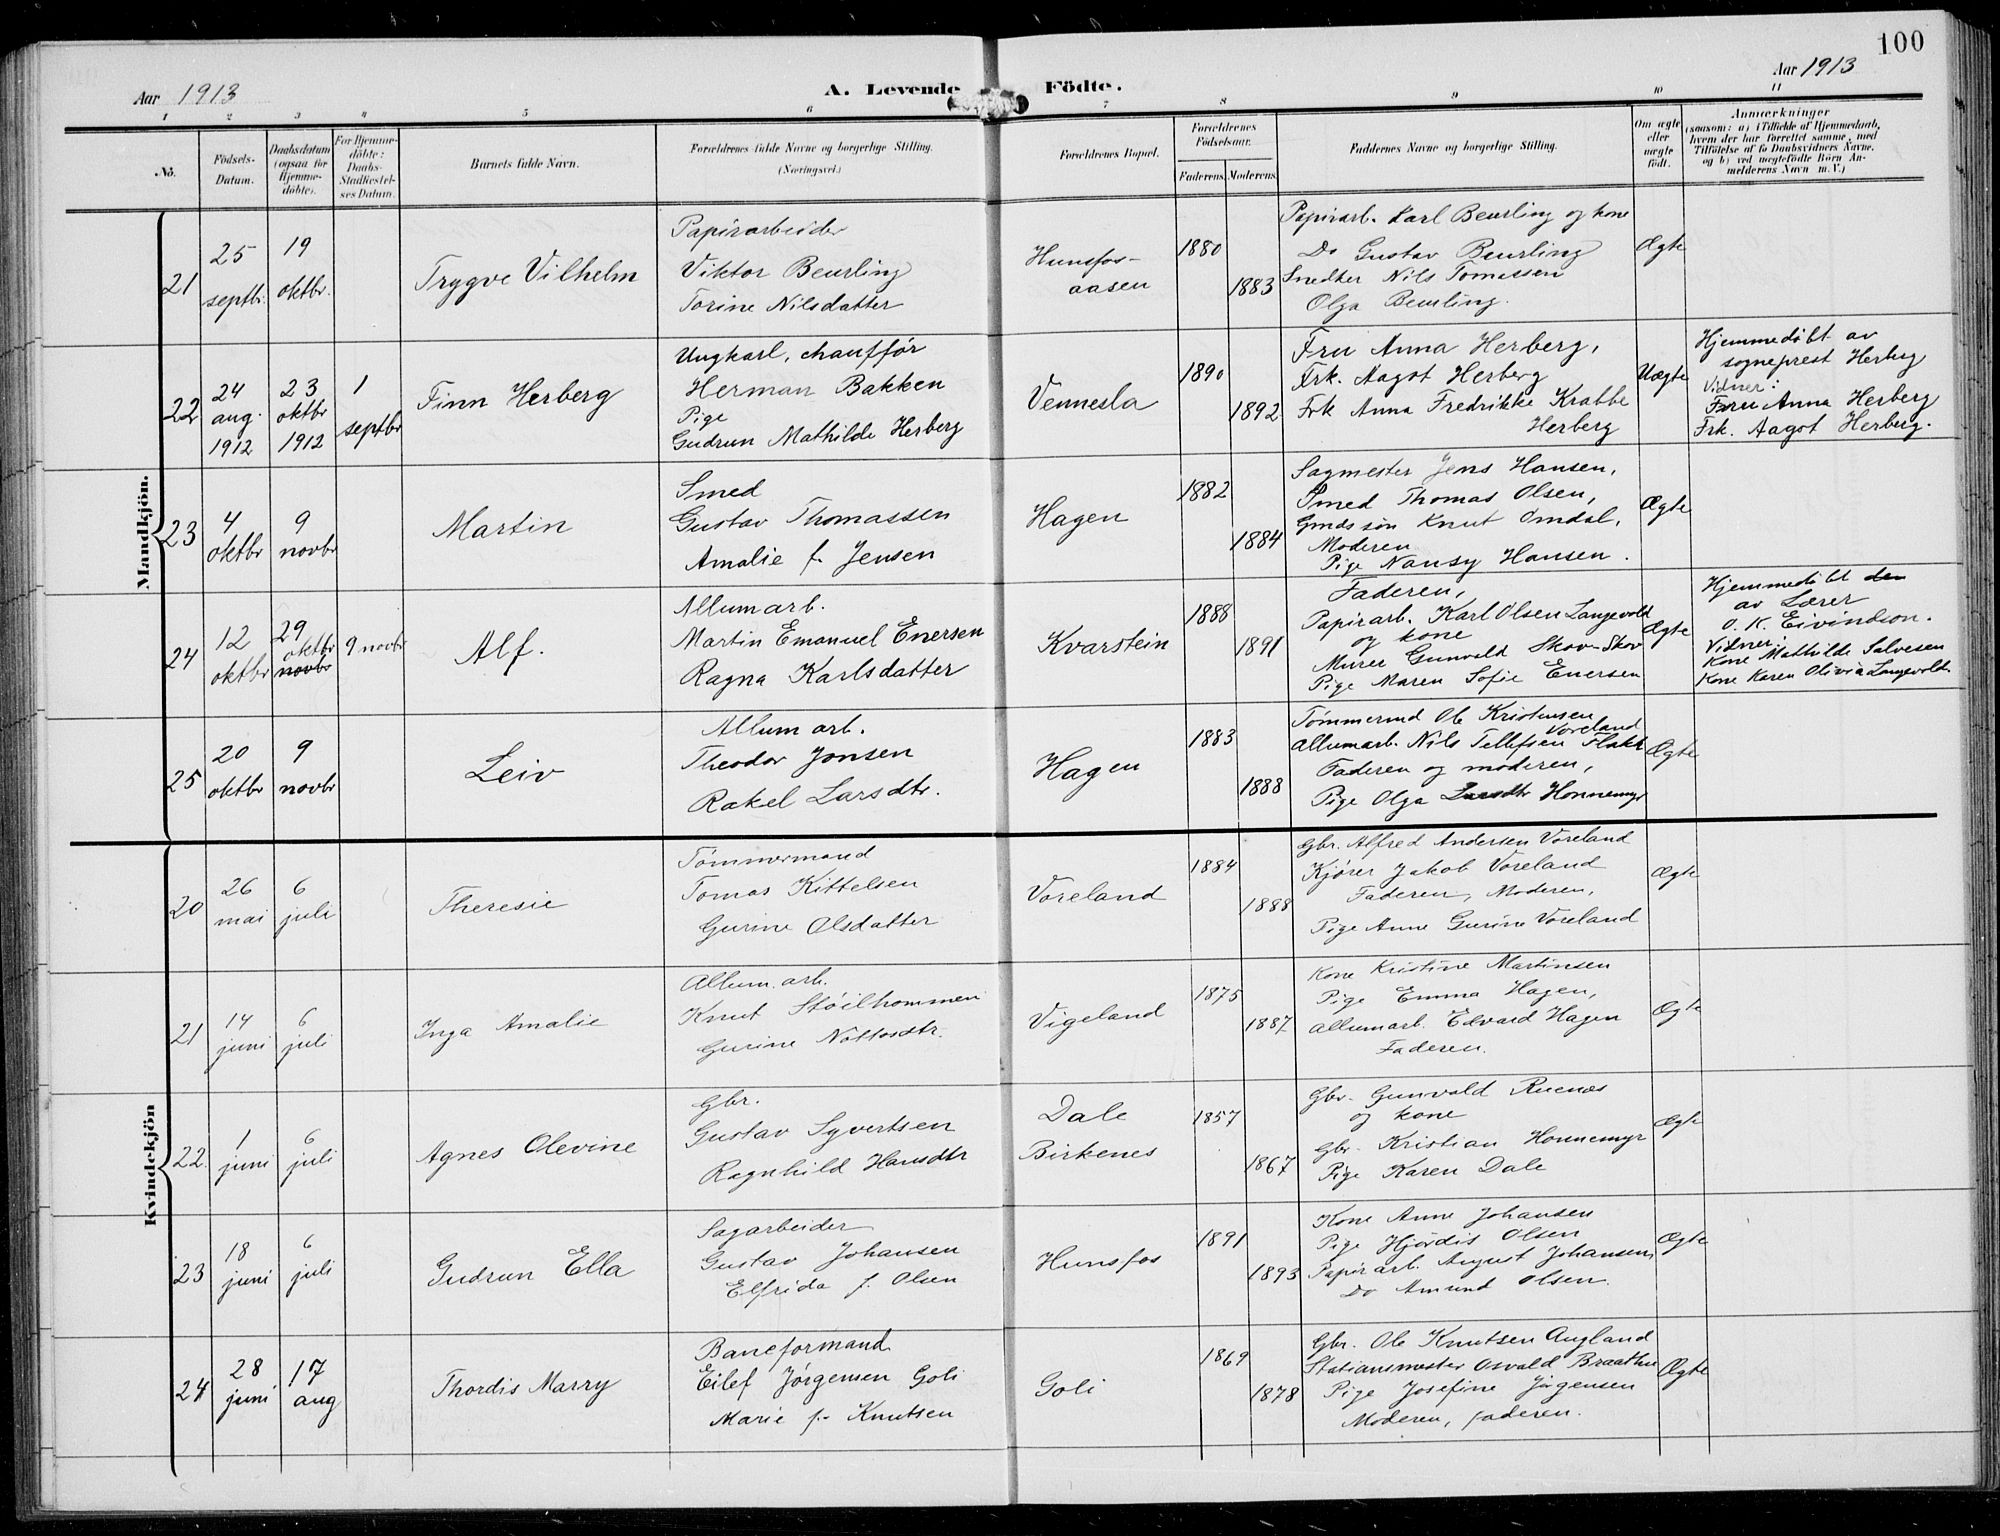 100
Aar 1913
A. Levende Födte.
Aar 1913
1 2 3 4 5 6 7 8 9 10 11
No.
Födsels-Datum.
Daabsdatum (ogsaa for Hjemmedöbte).
For Hjemmedöbte: Daabs-Stadfæstelses Datum.
Barnets fulde Navn.
Forældrenes fulde Navne og borgerlige Stilling. (Næringsvei.)
Forældrenes Bopæl.
Forældrenes Födselsaar.
Faderens. Moderens.
Faddernes Navne og borgerlige Stilling.
Om ægte eller uægte födt.
Anmærkninger
(saasom: a) i Tilfælde af Hjemmedaab, hvem der har forrettet samme, med Tilföielse af to Daabsvidners Navne, og b) ved uegtefödte Börn Anmelderens Navn m. V.)
Mandkjön.
21
25 septbr.
19 oktbr.
Trygve Vilhelm
Papirarbeider
Viktor Beurling
Torine Nilsdatter
Hunsfos-
aasen
1880
1883
Papirarb. Karl Beurling og kone
Do Gustav Beurling
Snedker Nils Tomassen
Olga Beurling.
Ægte
22
24 aug. 1912
23 oktbr 1912
1 septbr
Finn Herberg
Ungkarl, chauffør
Herman Bakken
Pige
Gudrun Mathilde Herberg
Vennesla
1890
1892
Fru Anna Herberg,
Frk. Aagot Herberg
Frk Anna Fredrikke Krabbe
Herberg
Uægte
Hjemmedøbt av
sogneprest Herberg
Vidner:
Fru Anna Herberg
Frk. Aagot Herberg.
23
4 oktbr
9 novbr
Martin
Smed
Gustav Thomassen
Amalie f. Jensen
Hagen
1882
1884
Sagmester Jens Hansen,
Smed Thomas Olsen,
Gmds søn Knut Omdal,
Moderen
Pige Nansy Hansen.
Ægte
24
12 oktbr
29 oktbr
novbr
9 novbr
Alf.
Allumarb.
Martin Emanuel Enersen
Ragna Karlsdatter
Kvarstein
1888
1891
Faderen,
Papirarb. Karl Olsen Langevold
og kone
Murer Gunvald Skov-Skov
Pige Maren Sofie Enersen
Ægte
Hjemmedøbt den
av Lærer
O. K. Eivindson.
Vidner:
Kone Mathilde Salvesen
Kone Karen Olivia Langevold
25
20 oktbr
9 novbr
Leiv
Allum arb.
Theodor Jonsen
Rakel Larsdtr.
Hagen
1883
1888
Tømmermd Ole Kristensen
Voreland
Allumarb. Nils Tellefsen Flakk
Faderen og moderen,
Pige Olga Larsdtr Honnemyr
Ægte
Kvindekjön
20
26 mai
6 juli
Theresie
Tømmermand
Tomas Kittelsen
Gurine Olsdatter
Voreland
1884
1888
Gbr. Alfred Andersen Voreland
Kjører Jakob Voreland
Faderen, Moderen,
Pige Anne Gurine Voreland
Ægte
21
14 juni
6 juli
Inga Amalie
Allum. arb.
Knut Støilhommen
Gurine Nottosdtr.
Vigeland
1875
1887
Kone Kristine Martinsen
Pige Emma Hagen,
Allumarb. Edvard Hagen
Faderen.
Ægte
22.
1 juni
6 juli
Agnes Olevine
Gbr.
Gustav Syvertsen
Ragnhild Hansdtr
Dale
Birkenes
1857
1867
Gbr. Gunvald Ruenæs
og kone
Gbr. Kristian Honnemyr
Pige Karen Dale
Ægte
23
18 juni
6 juli
Gudrun Ella
Sagarbeider
Gustav Johansen
Elfrida f. Olsen
Hunsfos
1891
1893
Kone Anne Johansen
Pige Hjørdis Olsen
Papirarb. August Johansen,
Do Amund Olsen.
Ægte
24
28 juni
17 aug
Thordis Marry
Baneformand
Eilef Jørgensen Goli
Marie f. Knutsen
Goli
1869
1878
Gbr. Ole Knutsen Augland
Stationsmester Osvald Braathen
Pige Josefine Jørgensen
Moderen, faderen.
Ægte